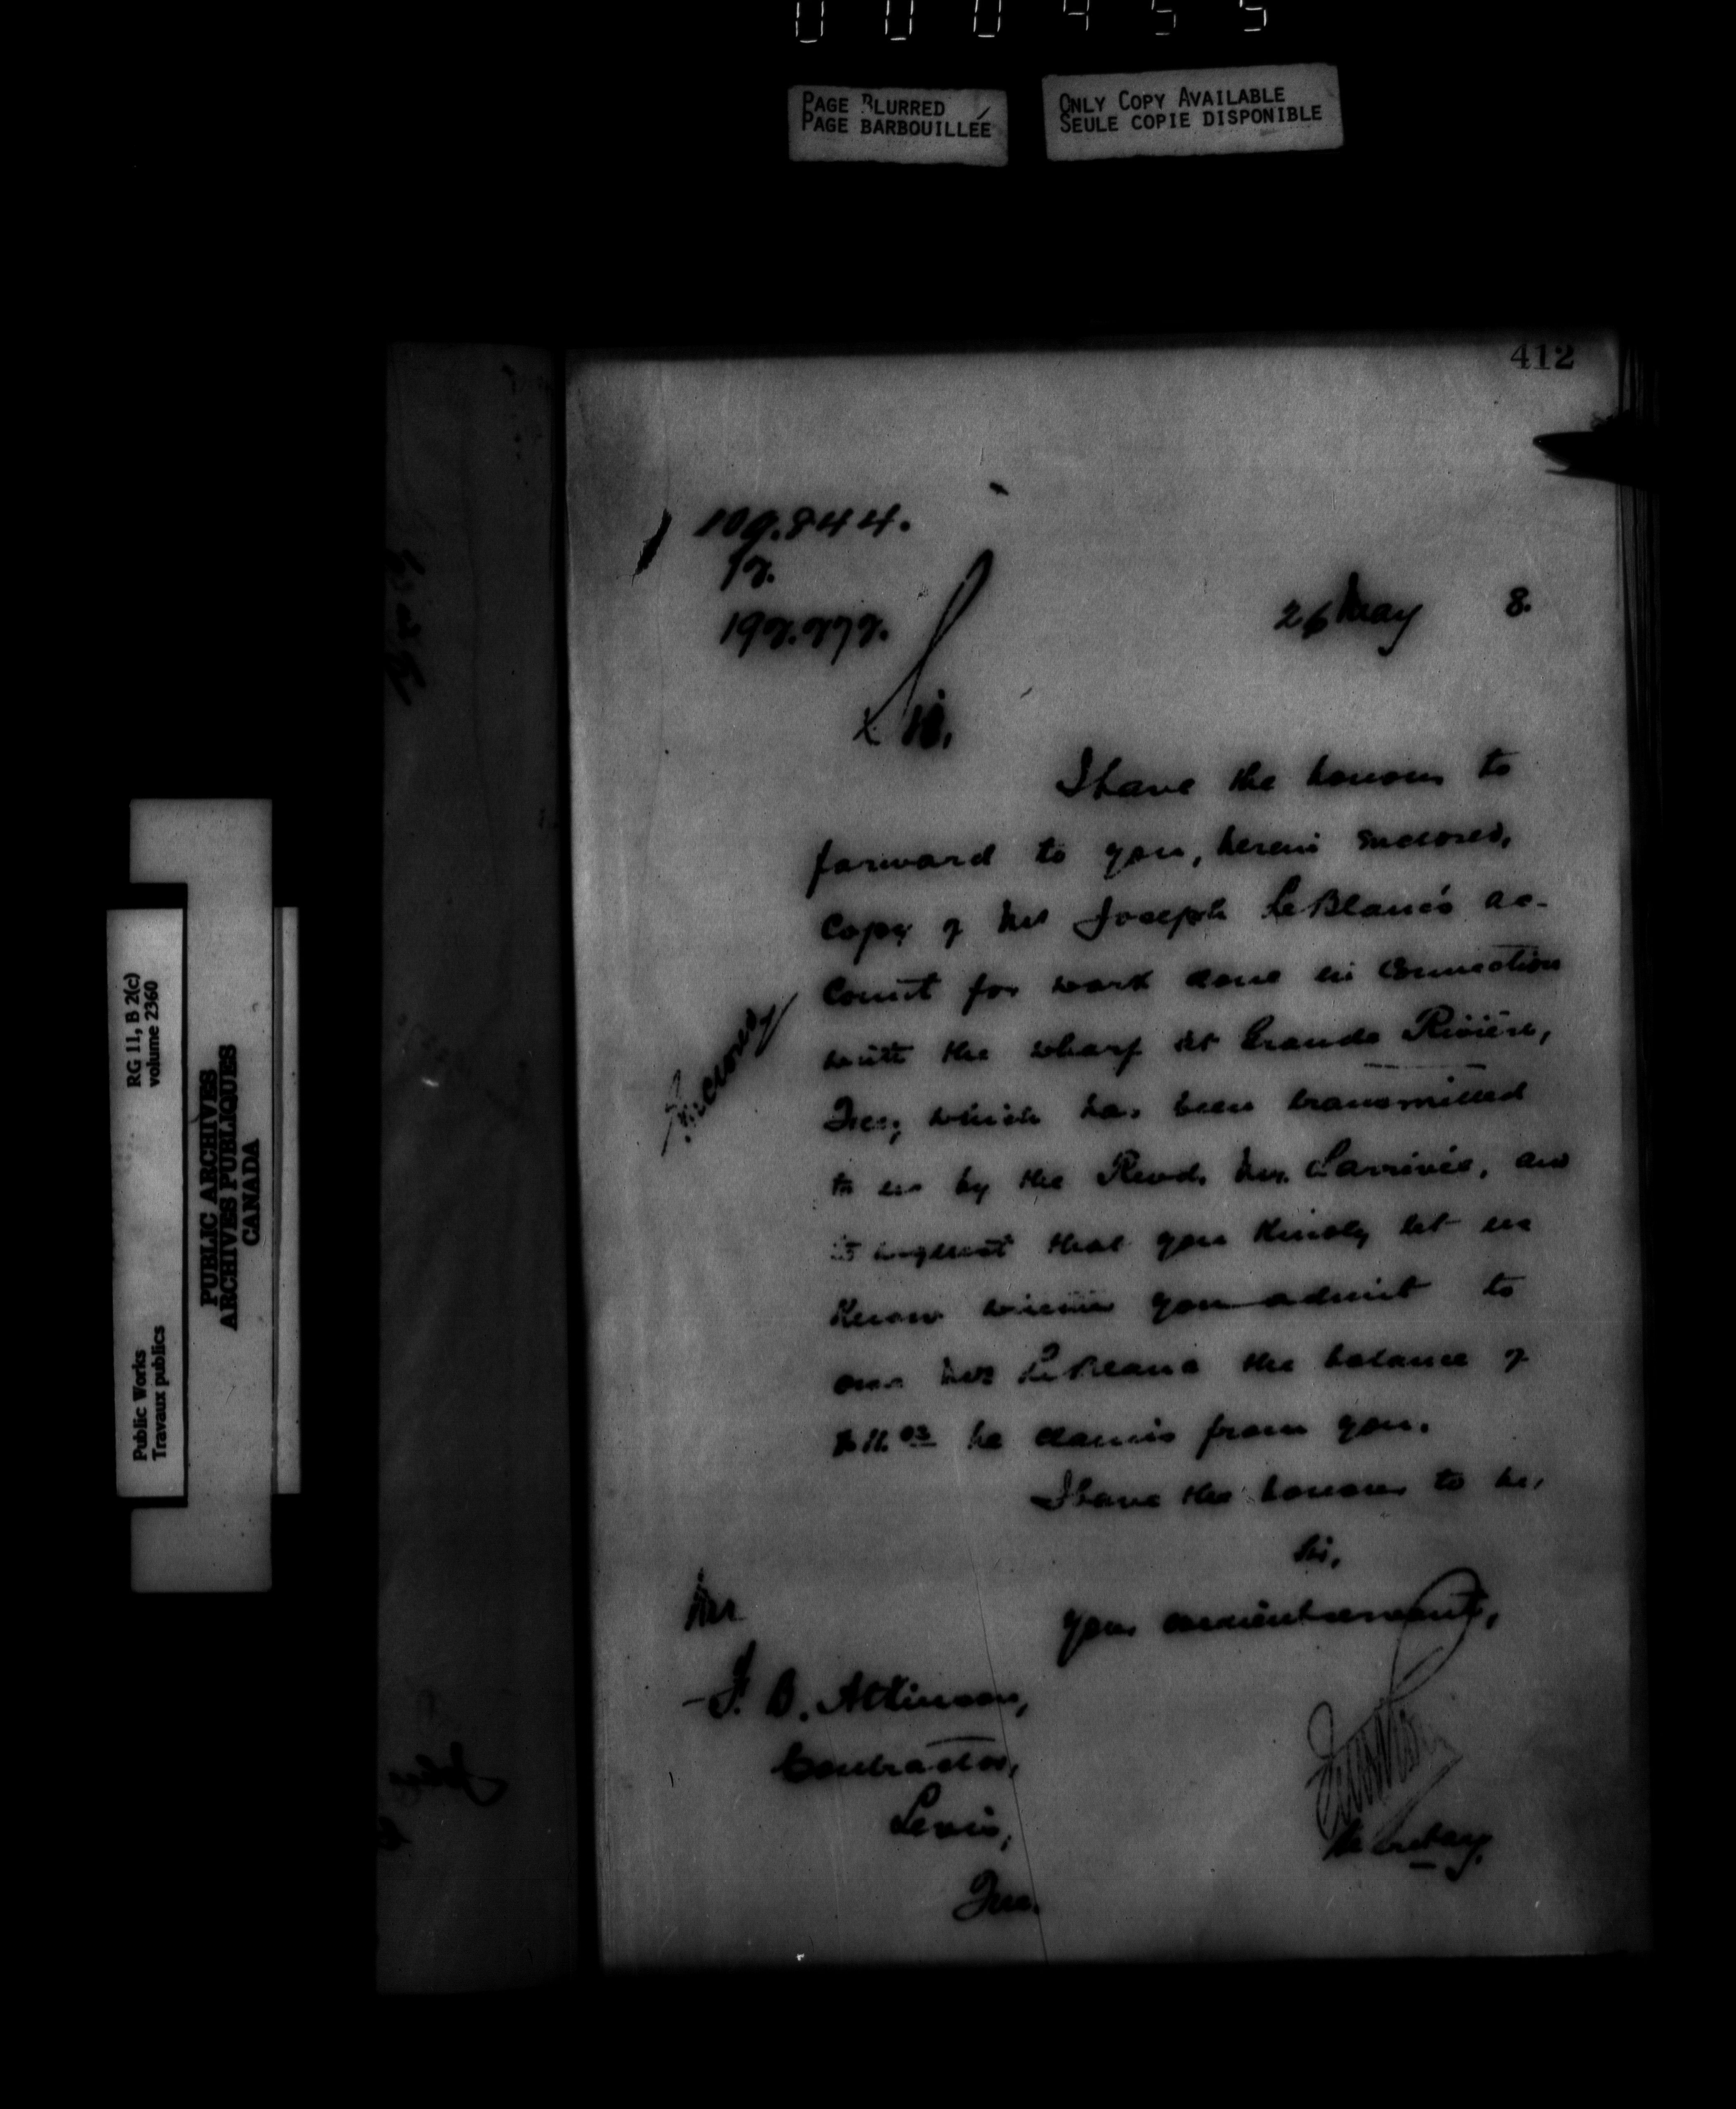 000455
PAGE BLURRED
PAGE BARBOUILLÉE
ONLY COPY AVAILABLE
SEULE COPIE DISPONIBLE
412
109.844.
26 May 8.
Sir,
I have the honour to
forward to you, herein enclosed,
Copy of Mr Joseph LeBlanc's ac-
count for work done in connection
with the wharf at Grande Rivière,
Que; which has been transmitted
to us by the Revd. Mr. Larrivée, and
to request that you kindly let us
know whether you admit to
owe Mr LeBlanc the balance of
he claims from you.
I have the honour to be,
Sir,
your obedient servant,
Secretary.
Enclosed
Mr
F. B. Atkinson,
Contractor,
Levis,
Que.
RG 11, B 2(c)
volume 2360
Public Works
Travaux publics
PUBLIC ARCHIVES
ARCHIVES PUBLIQUES
CANADA